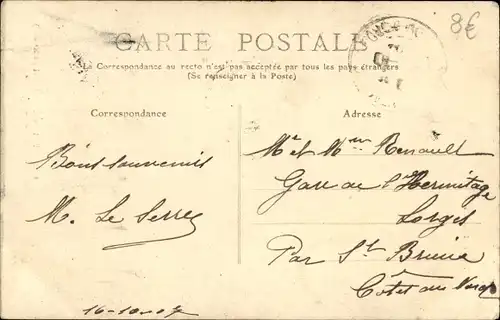 8€
CARTE POSTALE
La Correspondance au recto n'est pas acceptée par tous les pays étrangers
(Se renseigner à la Poste)
Correspondance
Adresse
Bons souvenirs
M. Le Serre
16-10-07
Mr et Mme Renault
Gare de l'Hermitage
Lorges
Par St Brieuc
Côtes du Nord